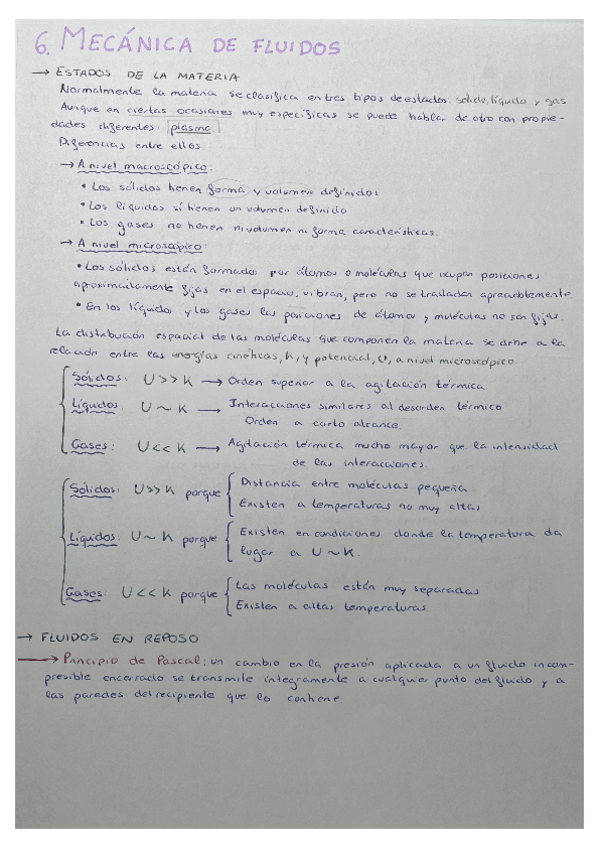 6. MECÁNICA DE FLUIDOS
→ ESTADOS DE LA MATERIA
Normalmente la materia se clasifica en tres tipos de estados: sólido, líquido y gas
Aunque en ciertas ocasiones muy específicas se puede hablar de otro con propie-
dades diferentes: plasma.
Diferencias entre ellos:
→ A nivel macroscópico:
• Los sólidos tienen forma y volumen definidos
• Los líquidos sí tienen un volumen definido
• Los gases no tienen ni volumen ni forma características.
→ A nivel microscópico:
• Los sólidos están formados por átomos o moléculas que ocupan posiciones
aproximadamente fijas en el espacio, vibran, pero no se trasladan apreciablemente.
• En los líquidos y los gases las posiciones de átomos y moléculas no son fijas.
La distribución espacial de las moléculas que componen la materia se debe a la
relación entre las energías cinéticas, K, y potencial, U, a nivel microscópico
Sólidos: U>>K → Orden superior a la agitación térmica
Líquidos: U ~ K → Interacciones similares al desorden térmico
Orden a corto alcance.
Gases: U<<K → Agitación térmica mucho mayor que la intensidad
de las interacciones
Sólidos: U>>K porque { Distancia entre moléculas pequeña
Existen a temperaturas no muy altas
Líquidos: U~K porque { Existen en condiciones donde la temperatura da
lugar a U~K.
Gases: U<<K porque { Las moléculas están muy separadas
Existen a altas temperaturas.
→ FLUIDOS EN REPOSO
→ Principio de Pascal: un cambio en la presión aplicada a un fluido incom-
presible encerrado se transmite íntegramente a cualquier punto del fluido y a
las paredes del recipiente que lo contiene